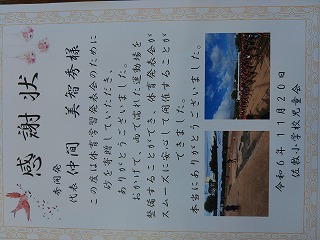 感謝状
秀開発
代表 仲間 美智秀様
この度は体育学習発表会のために
砂を寄贈していただき、
ありがとうございました。
おかげで、雨で濡れた運動場を
整備することができ、体育発表会が
スムーズに安心して開催することが
できました。
本当にありがとうございました。
令和6年11月20日
佐敷小学校児童会